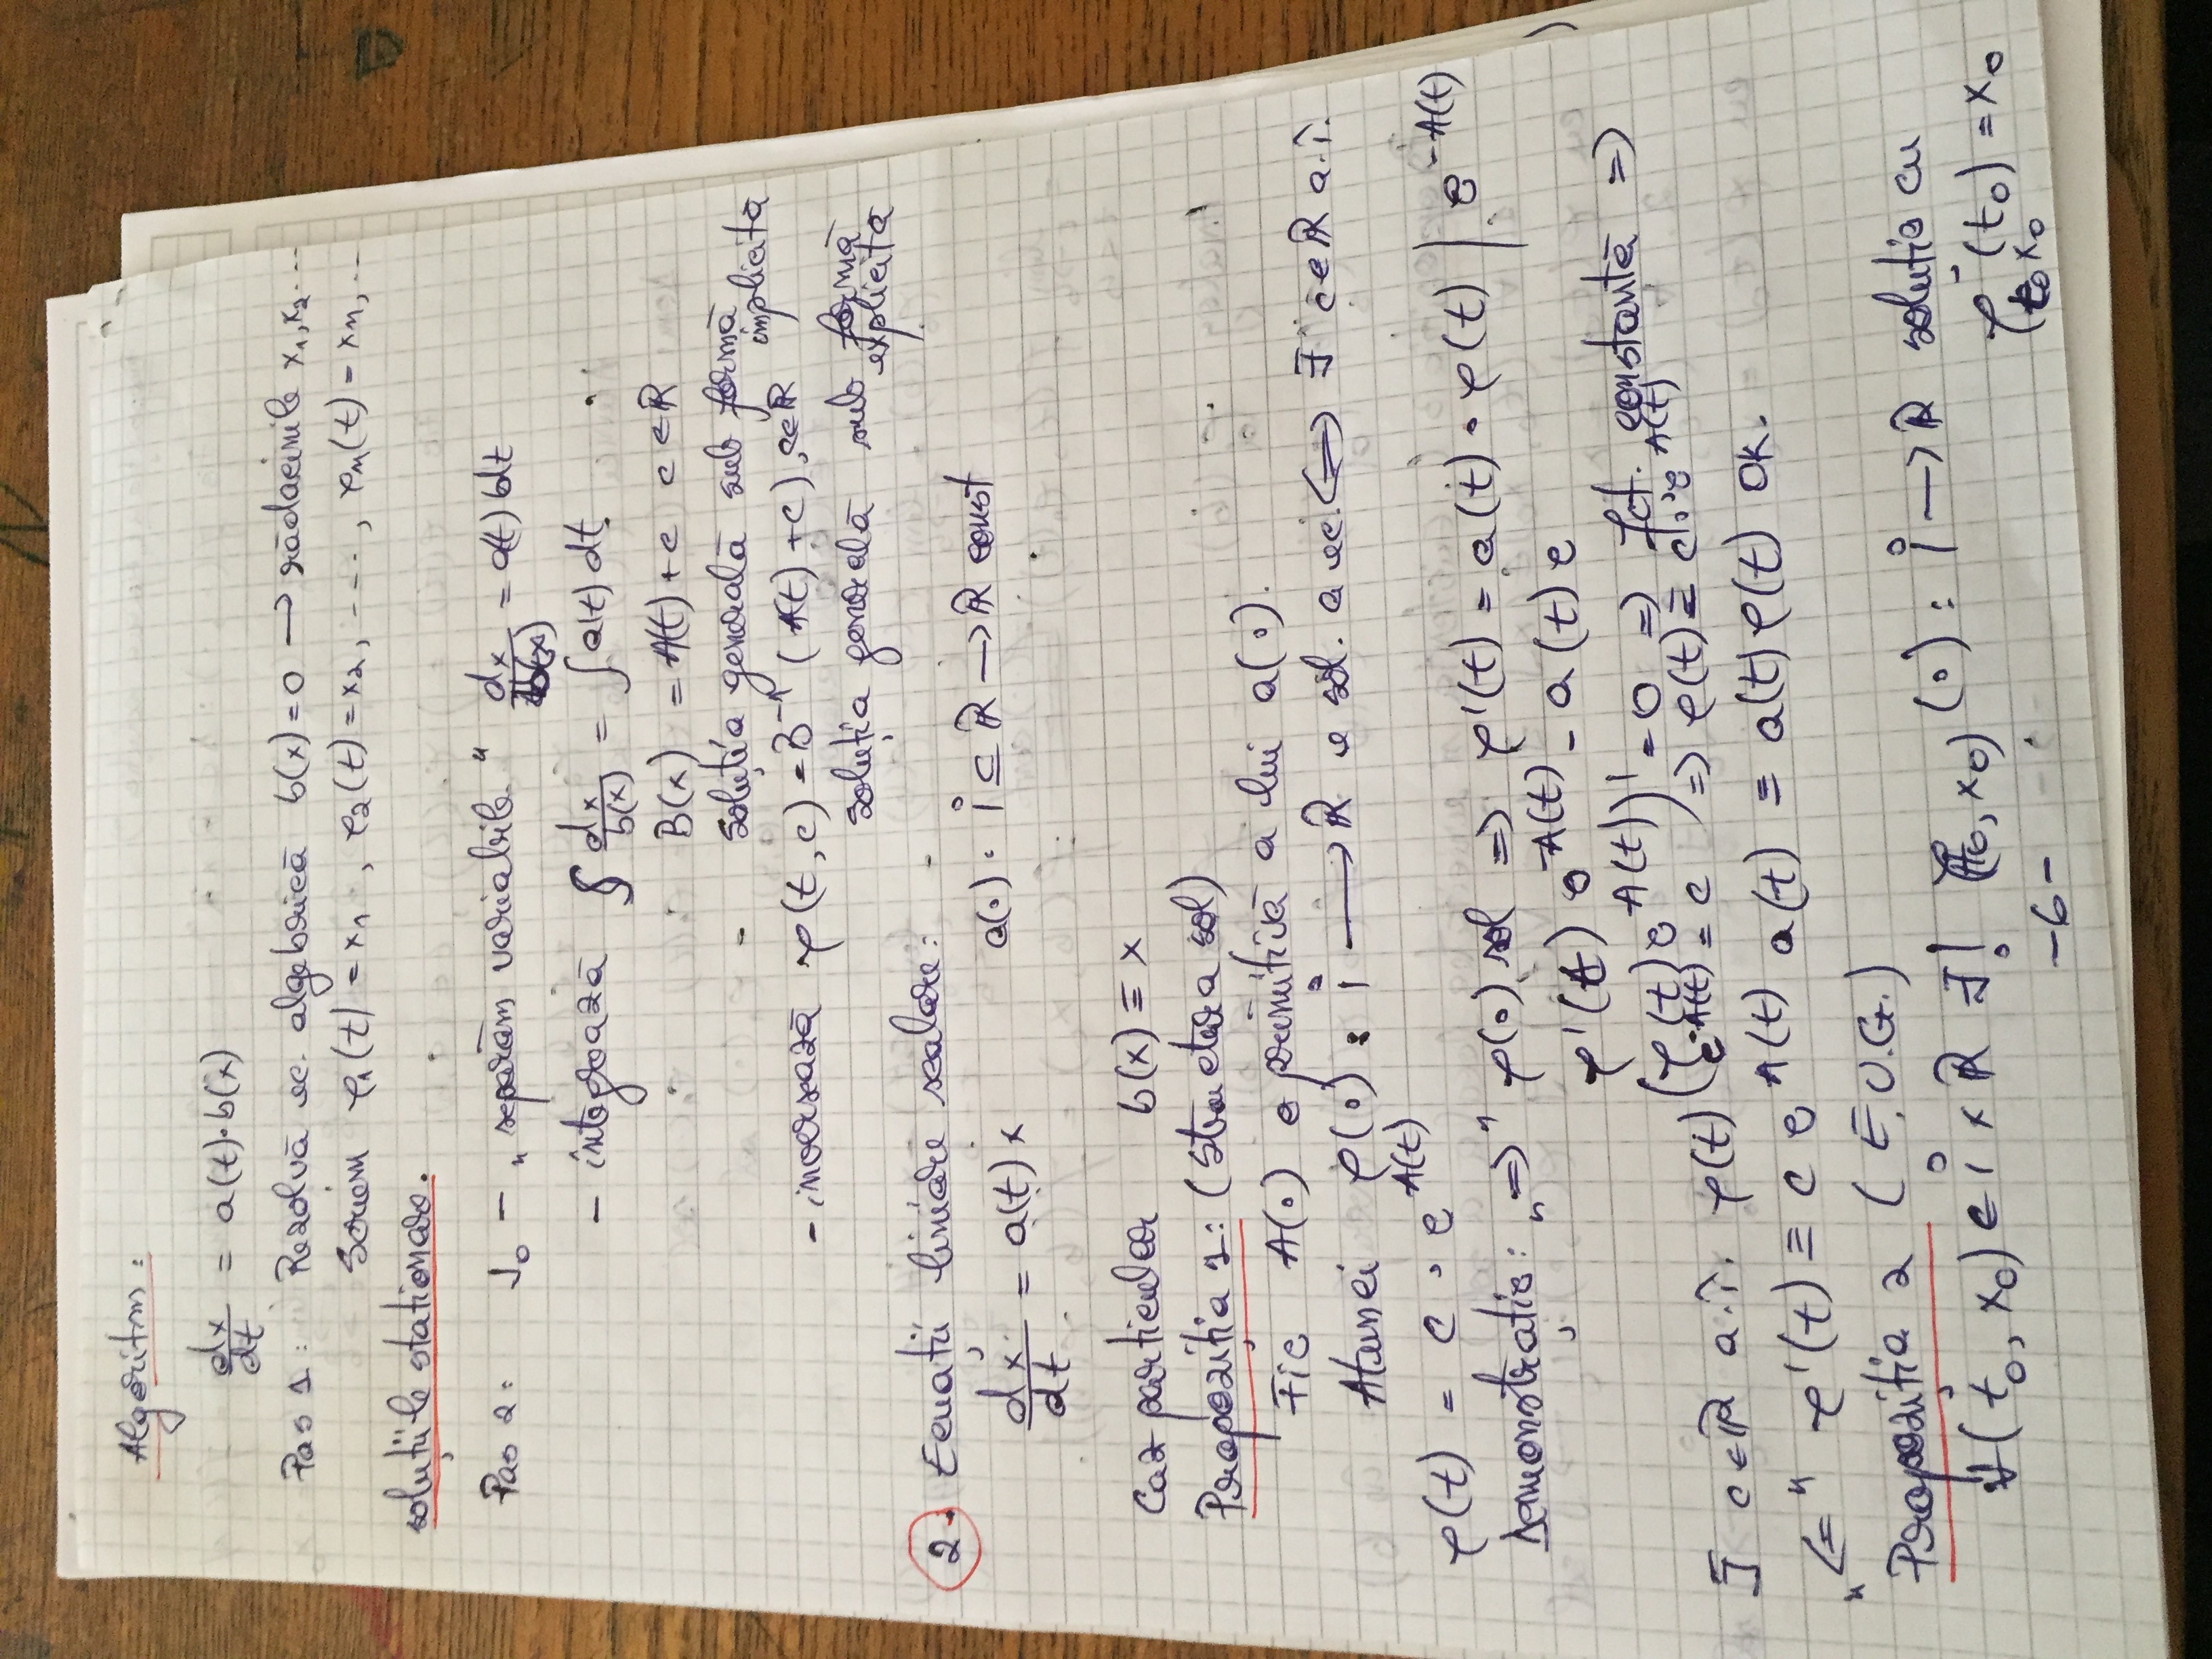 Algoritm:
dx/dt = a(t)·b(x)
Pas 1: Rezolvă ec. algebrică b(x)=0 → rădacinile x₁,x₂...
Scriem φ₁(t)=x₁, φ₂(t)=x₂, ...., φₙ(t)=xₙ,..
soluțiile staționare.
Pas 2: J₀ - „separăm variabile" dx/b(x) = a(t)dt
- integrează ∫ dx/b(x) = ∫a(t) dt
B(x) = A(t)+c c∈ℝ
- soluția generală sub formă implicită
- inversează φ(t,c)=B⁻¹(A(t)+c), c∈ℝ
soluția generală sub formă explicită
2. Ecuații liniare scalare:
dx/dt = a(t)x a(·): I⊆ℝ→ℝ const
Caz particular b(x)≡x
Propoziția 1: (structura sol)
Fie A(·) o primitivă a lui a(·).
Atunci φ(·): I → ℝ e sol. a ec. ⟺ ∃ c∈ℝ a.î.
φ(t) = c·e^A(t)
Demonstrație: „⇒" φ(·) sol ⇒ φ'(t) = a(t)·φ(t) | e^-A(t)
φ'(t) e^-A(t) - a(t) e
(φ(t)e^A(t))' = 0 ⇒ fct. constantă ⇒
∃ c∈ℝ a.î. φ(t) e^-A(t) = c ⇒ φ(t) ≡ c·e^A(t)
„⇐" φ'(t) ≡ c e^A(t) a(t) ≡ a(t)φ(t) OK.
Propoziția 2 (E.U.G.)
∀(t₀, x₀)∈I×ℝ ∃! φ(t₀,x₀)(·): I→ℝ soluție cu
φt₀x₀(t₀)=x₀
-6-